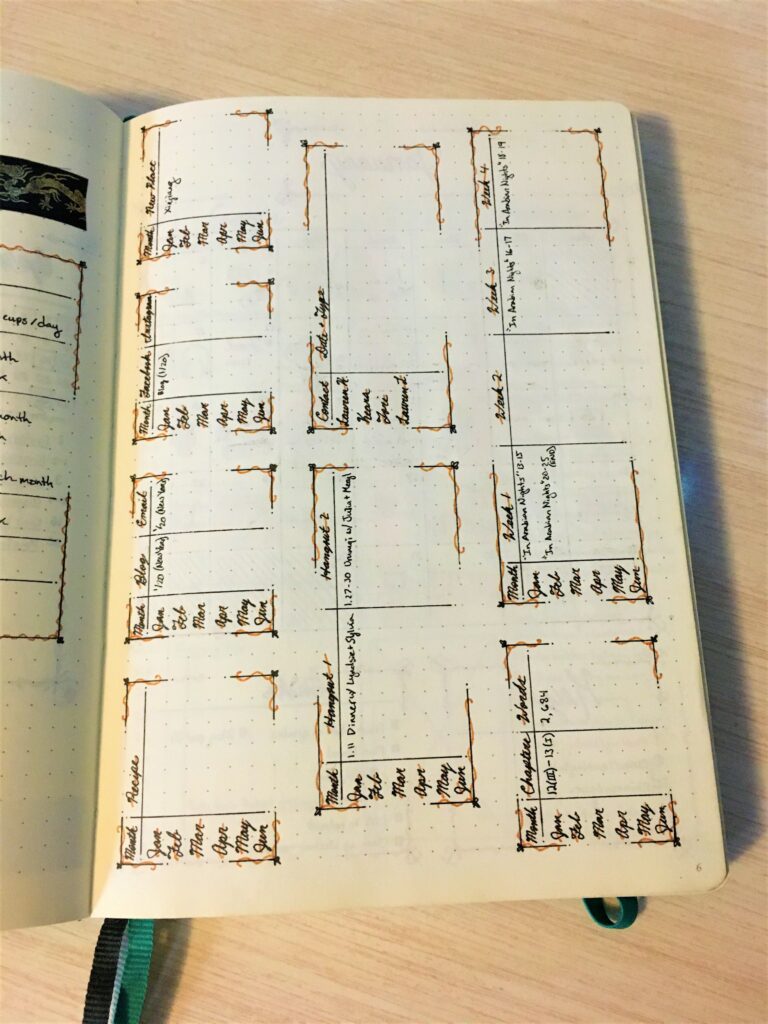 cups/day
month
ch month
Month Recipe
Jan
Feb
Mar
Apr
May
Jun
Month Blog Email
Jan 1/20 (New Year) 1/20 (New Year)
Feb
Mar
Apr
May
Jun
Month Facebook Instagram
Jan Blog (1/20)
Feb
Mar
Apr
May
Jun
Month New Place
Jan Xinjiang
Feb
Mar
Apr
May
Jun
Month Hangout 1 Hangout 2
Jan 1.11 Dinner w/ + Sylvia 1.27-30 w/ Julia + Meryl
Feb
Mar
Apr
May
Jun
Contact Date + Type
Lauren H.
Keena
Tori
Lauren L.
Month Chapters Words
Jan 12(III)-13(I) 2,684
Feb
Mar
Apr
May
Jun
Month Week 1 Week 2 Week 3 Week 4
Jan "In Arabian Nights" 13-15 "In Arabian Nights" 16-17 "In Arabian Nights" 18-19
Feb "In Arabian Nights" 20-25 (END)
Mar
Apr
May
Jun
6